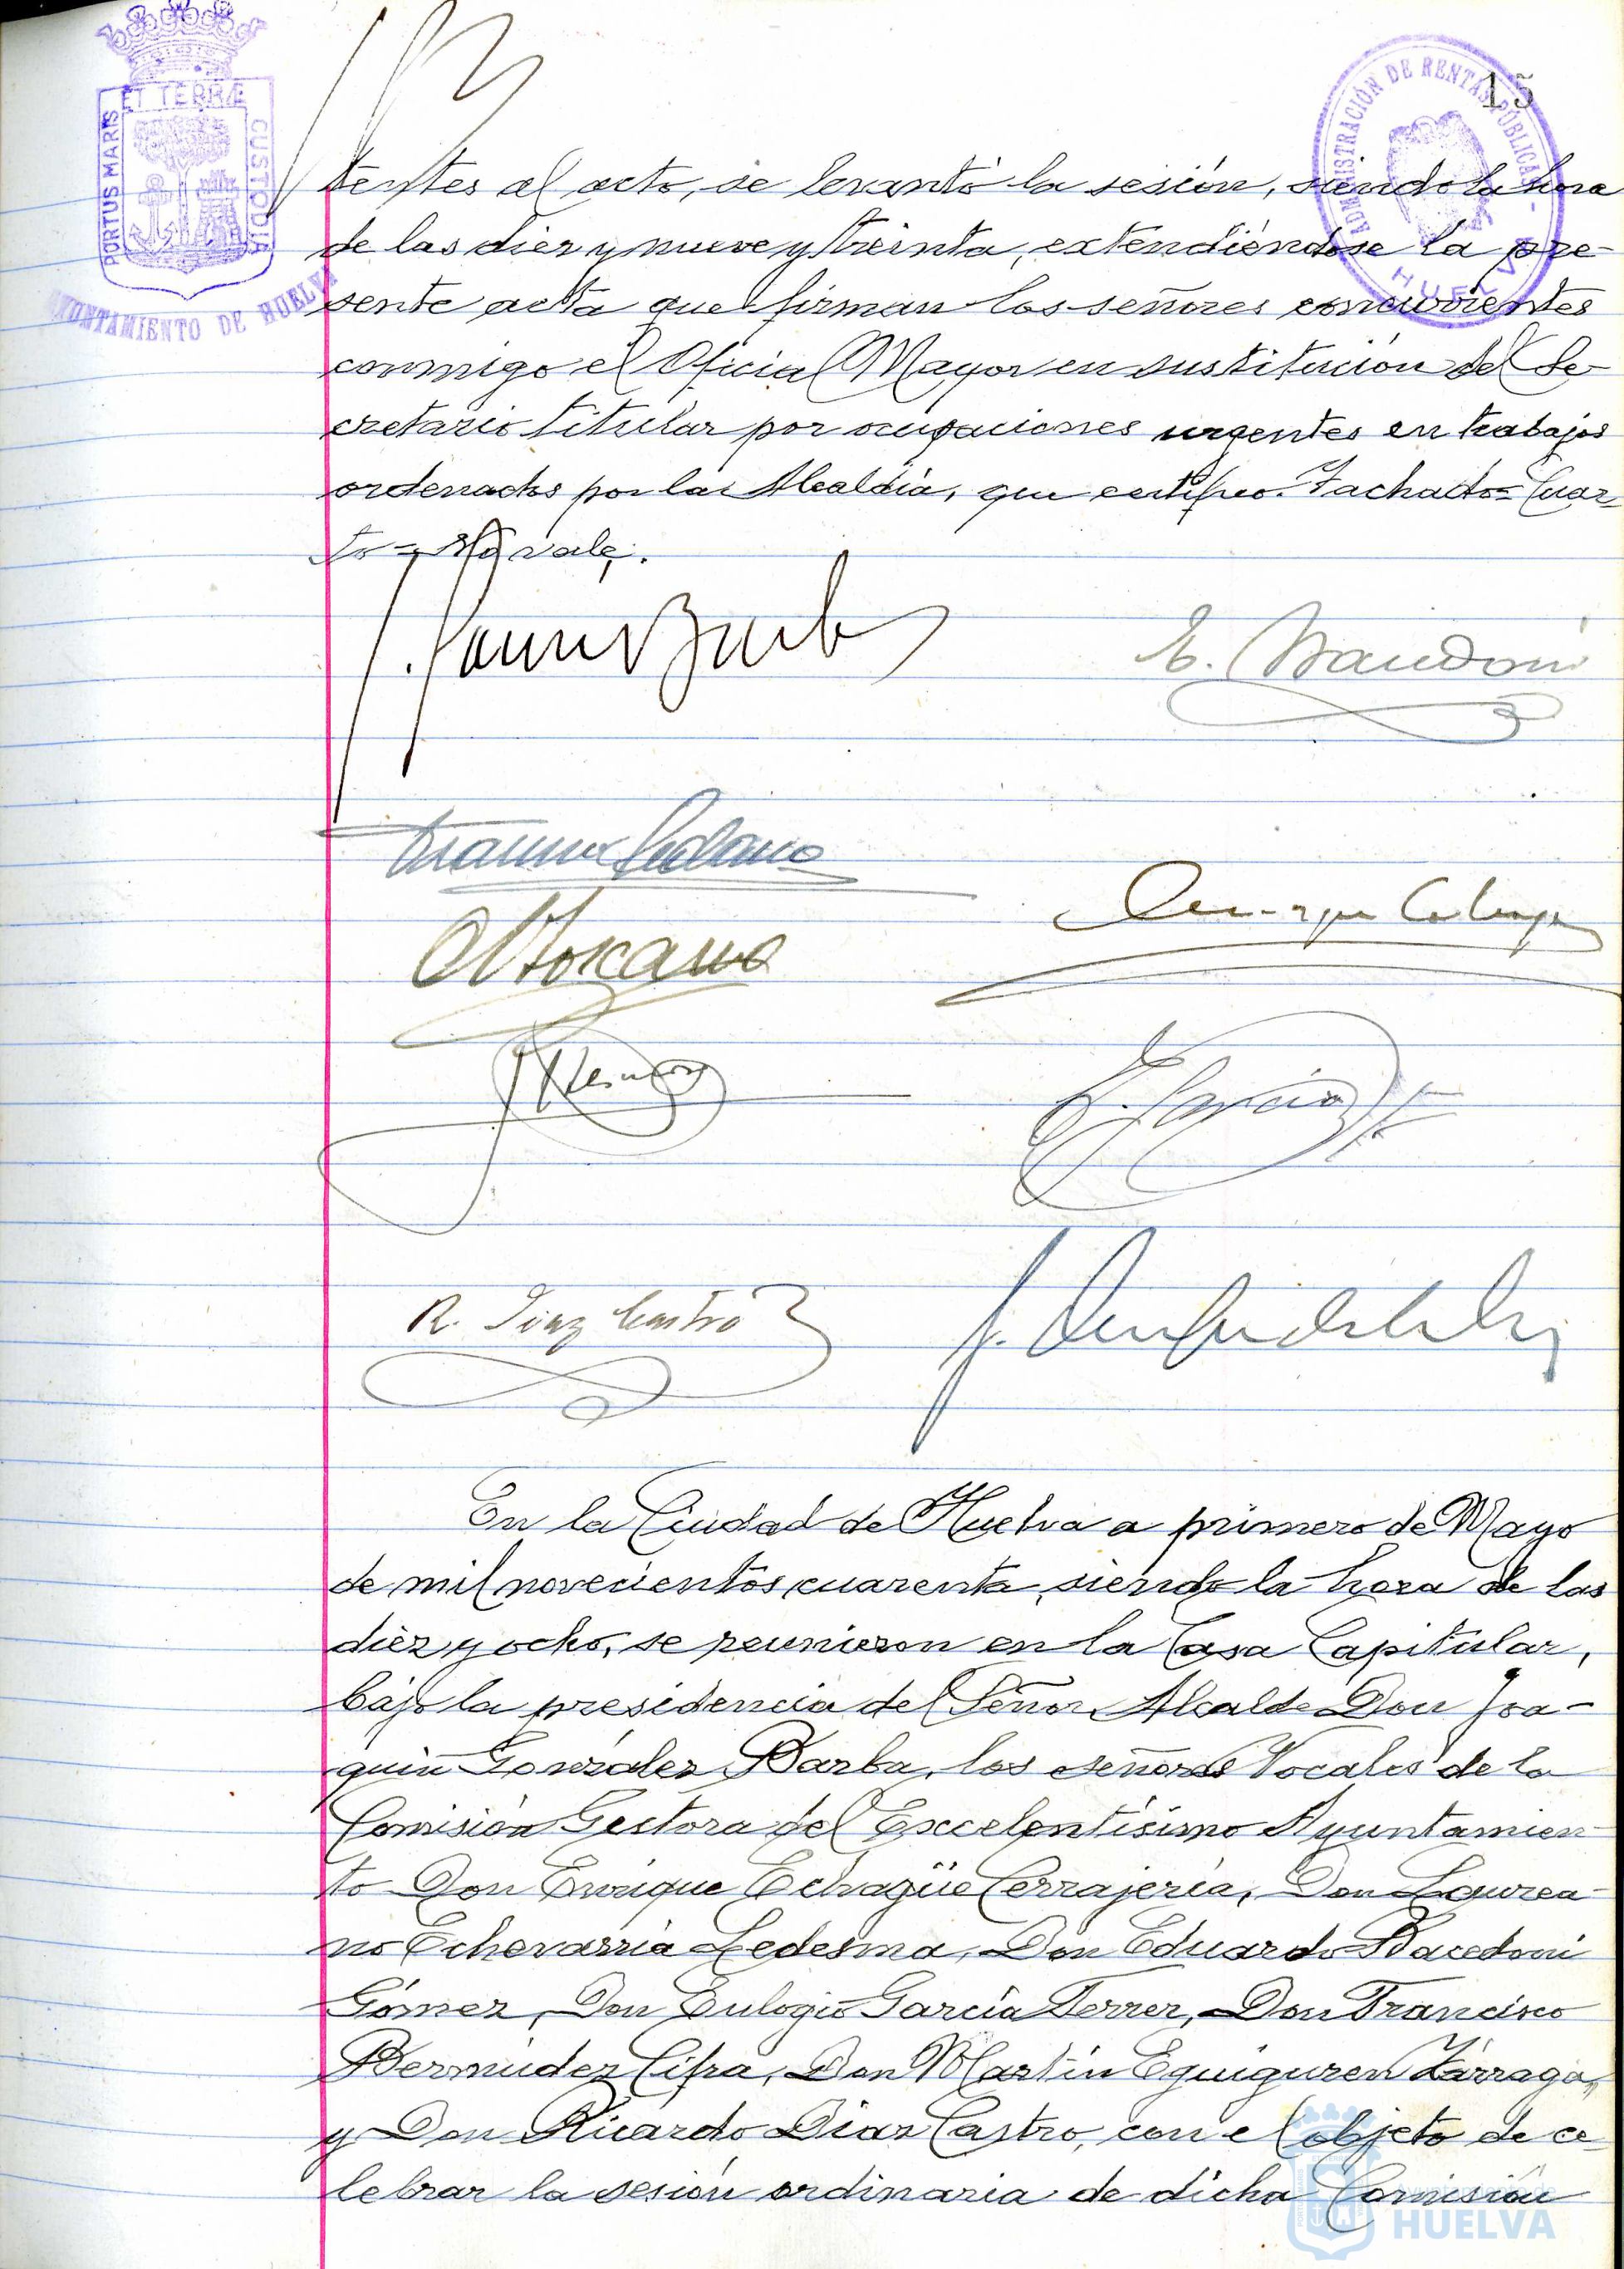 15
PORTUS MARIS ET TERRÆ CUSTODIA
AYUNTAMIENTO DE HUELVA
ADMINISTRACIÓN DE RENTAS PÚBLICAS - HUELVA
tentes al acto, se levantó la sesión, siendo la hora
de las diez y nueve y treinta, extendiéndose la pre-
sente acta que firman los señores concurrentes
conmigo el Oficial Mayor en sustitución del Se-
cretario titular por ocupaciones urgentes en trabajos
ordenados por la Alcaldía, que certifico. Tachado = Cuar-
to = No vale.
R. Diaz Castro
E. Garcia
En la Ciudad de Huelva a primero de Mayo
de mil novecientos cuarenta, siendo la hora de las
diez y ocho, se reunieron en la Casa Capitular,
bajo la presidencia del Señor Alcalde Don Joa-
quin González Barba, los señores Vocales de la
Comisión Gestora del Excelentísimo Ayuntamien-
to Don Enrique Echagüe Cerrajería, Don Laurea-
no Echevarria Ledesma, Don Eduardo Bacedoni
Gómez, Don Eulogio García Ferrer, Don Francisco
Bermudez Cifra, Don Martín Eguiguren Zárraga,
y Don Ricardo Diaz Castro, con el objeto de ce-
lebrar la sesión ordinaria de dicha Comisión
HUELVA